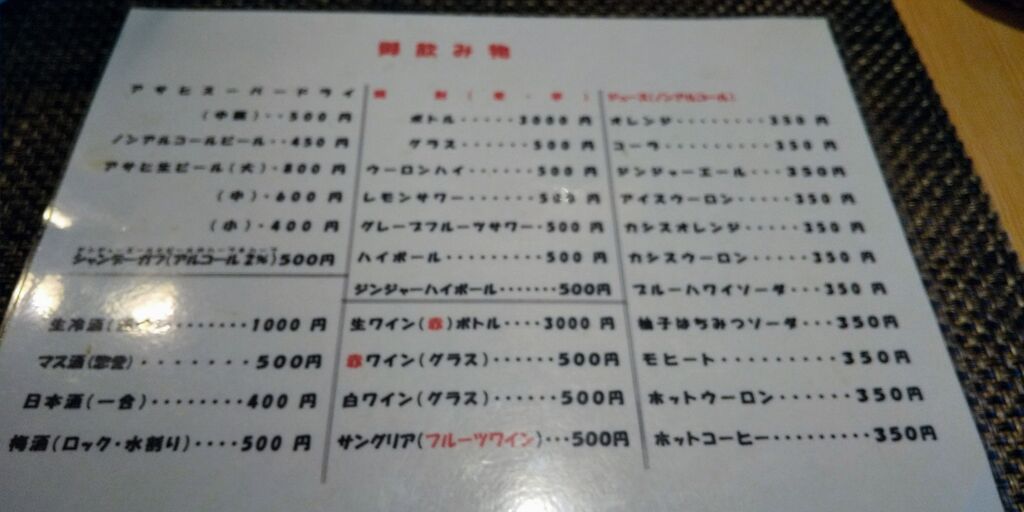 御飲み物
アサヒスーパードライ
(中瓶)・・500円
ノンアルコールビール・・450円
アサヒ生ビール(大)・800円
(中)・600円
(小)・400円
シャンディーガフ(アルコール2%)500円
生冷酒・・・・・・・1000円
マス酒・・・・・・・500円
日本酒(一合)・・・・・・・・400円
梅酒(ロック・水割り)・・・・500円
焼酎(麦・芋)
ボトル・・・・・3000円
グラス・・・・・・500円
ウーロンハイ・・・・・500円
レモンサワー・・・・・500円
グレープフルーツサワー・500円
ハイボール・・・・・・・500円
ジンジャーハイボール・・・・・・500円
生ワイン(赤)ボトル・・・・3000円
赤ワイン(グラス)・・・・・・500円
白ワイン(グラス)・・・・・・500円
サングリア(フルーツワイン)・・・500円
ジュース(ノンアルコール)
オレンジ・・・・・・・・350円
コーラ・・・・・・・・・350円
ジンジャーエール・・・350円
アイスウーロン・・・・・350円
カシスオレンジ・・・・・350円
カシスウーロン・・・・・350円
ブルーハワイソーダ・・・350円
柚子はちみつソーダ・・・350円
モヒート・・・・・・・・・350円
ホットウーロン・・・・・・350円
ホットコーヒー・・・・・・・・・350円